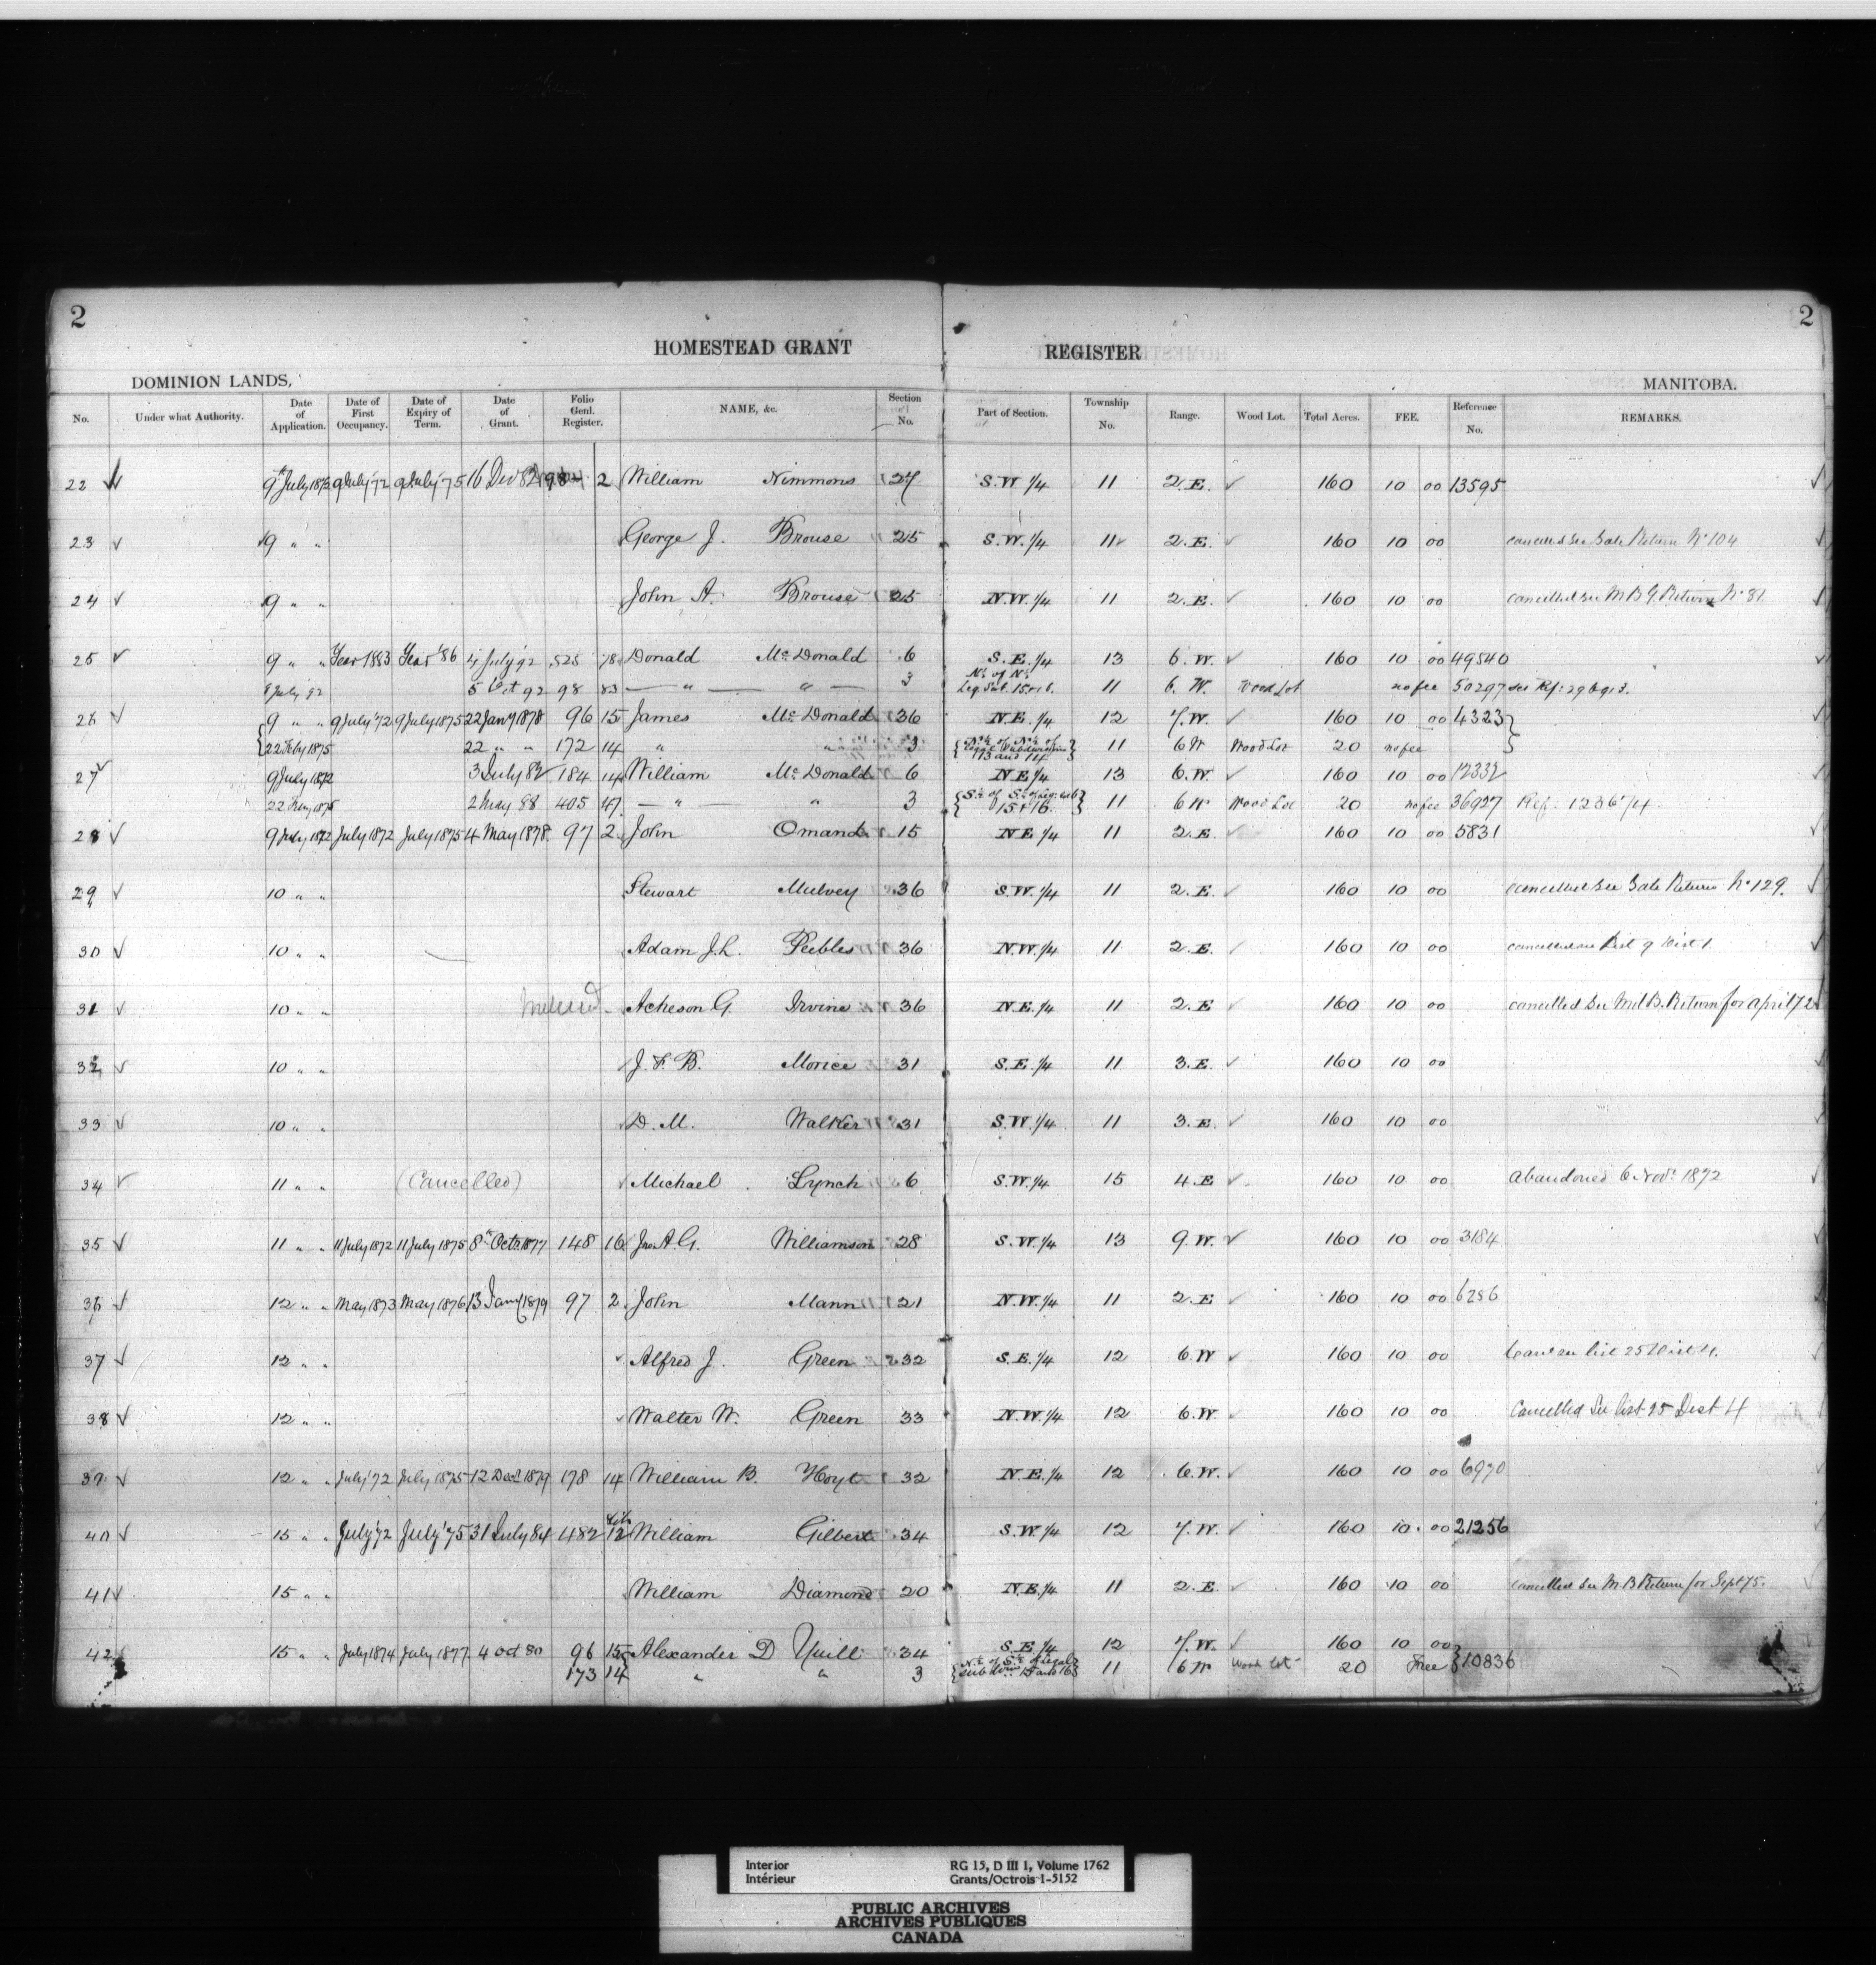 2 2
HOMESTEAD GRANT REGISTER
DOMINION LANDS, MANITOBA.
No. Under what Authority. Date of Application. Date of First Occupancy. Date of Expiry of Term. Date of Grant. Folio Genl. Register. NAME, &c. Section No. Part of Section. Township No. Range. Wood Lot. Total Acres. FEE. Reference No. REMARKS.
22 9th July 1872 9 July '72 9 July '75 16 Dec 82 98 2 William Nimmons 27 S.W. 1/4 11 2.E. 160 10 00 13595
23 9 " " George J. Brouse 25 S.W. 1/4 11 2.E. 160 10 00 cancelled see Sale Return No 104
24 9 " " John A. Brouse 25 N.W. 1/4 11 2.E. 160 10 00 cancelled see M B G. Return No 81.
25 9 " " Year 1883 Year '86 4 July '92 525 78 Donald McDonald 6 S.E. 1/4 13 6.W. 160 10 00 49540
9 July '92 5 Oct 92 98 83 — " — " — 3 N½ of N½ Leg. Sub. 15 & 16. 11 6.W. Wood Lot no fee 50297 see Ref: 296913.
26 9 " " 9 July '72 9 July 1875 22 Jany 1878 96 15 James McDonald 36 N.E. 1/4 12 7.W. 160 10 00 4323
22 Feby 1875 22 " " 172 14 " " 3 N½ of N½ of Legal Subdivisions 13 and 14 11 6 W Wood Lot 20 no fee
27 9 July 1872 3 July 82 184 14 William McDonald 6 N E 1/4 13 6.W. 160 10 00 12332
22 Feby 1875 2 May 88 405 47 — " " 3 S½ of S½ of Leg. sub 15 & 16. 11 6 W Wood Lot 20 no fee 36927 Ref. 123674
28 9 July 1872 July 1872 July 1875 4 May 1878. 97 2 John Omand 15 N E 1/4 11 2.E. 160 10 00 5831
29 10 " " Stewart Mulvey 36 S.W. 1/4 11 2.E. 160 10 00 cancelled see Sale Return No 129.
30 10 " " Adam J.L. Peebles 36 N.W. 1/4 11 2.E. 160 10 00 cancelled see List 9 Dist 1.
31 10 " " Acheson G. Irvine 36 N.E. 1/4 11 2.E 160 10 00 cancelled see Mil B. Return for april 72
32 10 " " J. F. B. Morice 31 S.E. 1/4 11 3.E. 160 10 00
33 10 " " D. M. Walker 31 S.W. 1/4 11 3.E. 160 10 00
34 11 " " (Cancelled) Michael Lynch 6 S.W. 1/4 15 4.E 160 10 00 Abandoned 6 Novr 1872
35 11 " " 11 July 1872 11 July 1875 8th Octr 1877 148 16 Jno. A. G. Williamson 28 S.W. 1/4 13 9.W. 160 10 00 3184
36 12 " " May 1873 May 1876 13 Jany 1879 97 2 John Mann 21 N.W. 1/4 11 2.E 160 10 00 6286
37 12 " " Alfred J. Green 32 S.E. 1/4 12 6.W 160 10 00 Canc see List 25 Dist 4.
38 12 " " Walter W. Green 33 N.W. 1/4 12 6.W. 160 10 00 Cancelled See List 25 Dist 4
39 12 " " July '72 July 1875 12 Decr 1879 178 14 William B. Hoyt 32 N.E. 1/4 12 6.W. 160 10 00 6930
40 15 " " July '72 July '75 31 July 84 482 12 William Gilbert 34 S.W. 1/4 12 7.W. 160 10 00 21256
41 15 " " William Diamond 20 N.E. 1/4 11 2.E. 160 10 00 cancelled see M. B Return for Sept 75.
42 15 " " July 1874 July 1877 4 Oct 80 96 15 Alexander D Yuill 34 S.E. 1/4 12 7.W. 160 10 00 10836
173 14 " " 3 N½ of S½ of Legal sub divns 15 and 16 11 6 W Wood Lot 20 Free
Interior RG 15, D III 1, Volume 1762
Intérieur Grants/Octrois 1-5152
PUBLIC ARCHIVES
ARCHIVES PUBLIQUES
CANADA